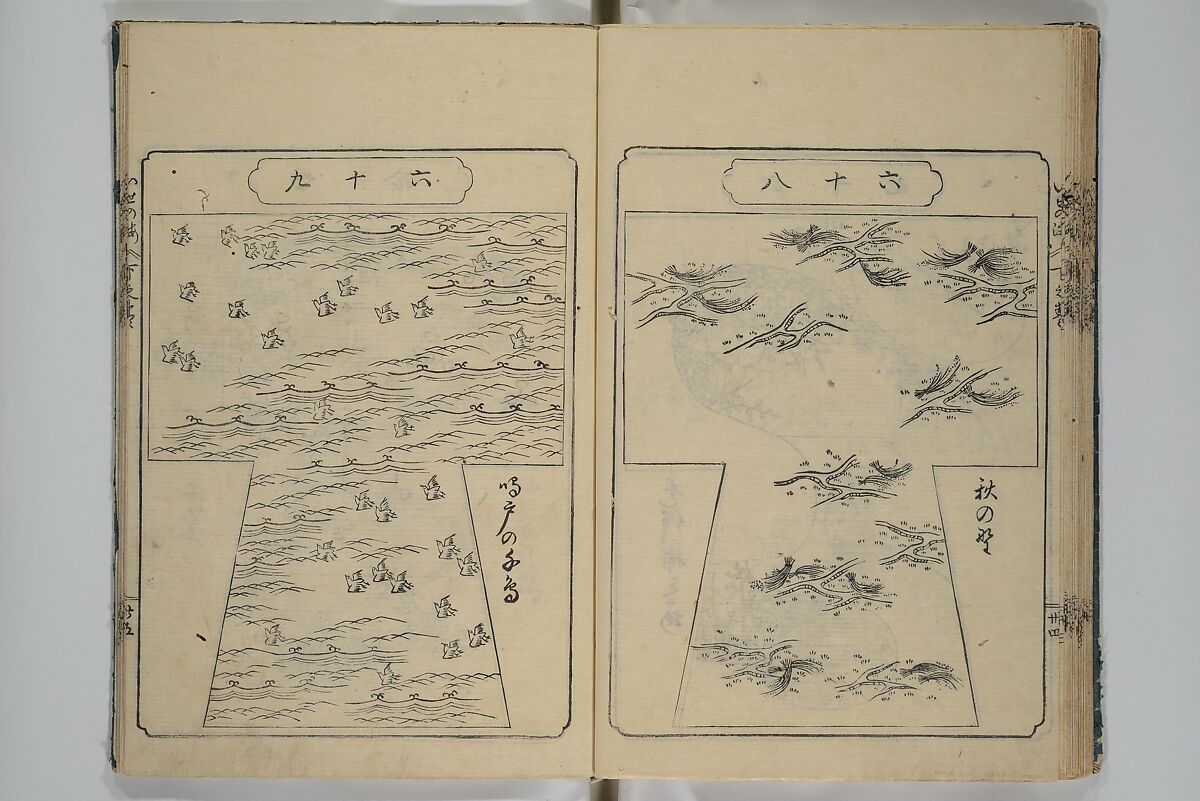 六十八
秋の野
廿四
六十九
鳴戸の千鳥
廿五